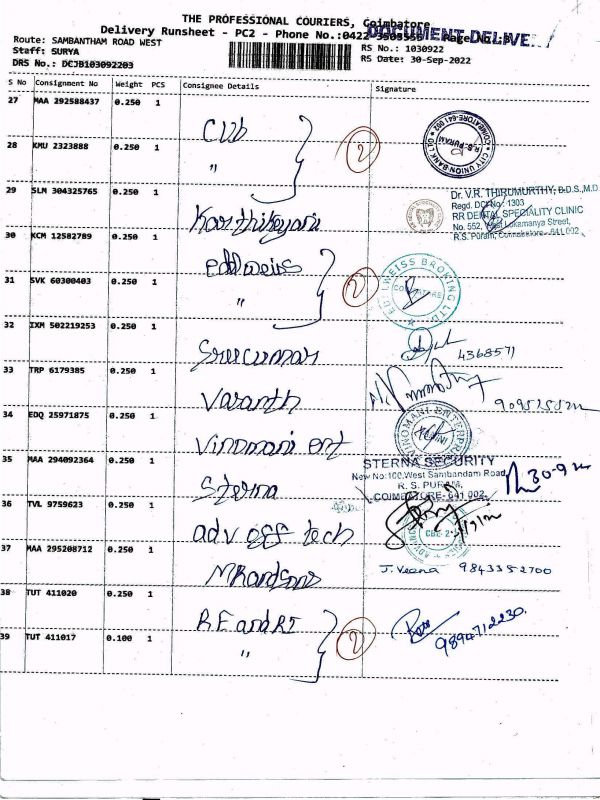 THE PROFESSIONAL COURIERS, Coimbatore
Delivery Runsheet - PC2 - Phone No.:0422
DOCUMENT DELIVE
Route: SAMBANTHAM ROAD WEST
RS No.: 1030922
Staff: SURYA
RS Date: 30-Sep-2022
DRS No.: DCJB103092203
S No Consignment No Weight PCS Consignee Details Signature
27 MAA 292588437 0.250 1
CUB
CITY UNION BANK LTD
R.S-PURAM
COIMBATORE-641 002
2
28 KMU 2323888 0.250 1
"
29 SLM 304325765 0.250 1
Karthikeyani
Dr. V.R. THIRUMURTHY, B.D.S.,M.D.
Regd. DCI No: 1303
RR DENTAL SPECIALITY CLINIC
No. 552, West Lokamanya Street,
R.S. Puram, Coimbatore - 641 002
30 KCM 12582789 0.250 1
eddlweiss
EDELWEISS BROKING LTD
COIMBATORE
2
31 SVK 60300403 0.250 1
"
32 IXM 502219253 0.250 1
Sreecumar
4368571
33 TRP 6179385 0.250 1
Vasanth
34 EDQ 25971875 0.250 1
Vinomani ent
VINOMANI ENTERPRISES
35 MAA 294092364 0.250 1
Sterna
STERNA SECURITY
New No:100,West Sambandam Road
R. S. PURAM,
COIMBATORE- 641 002
30-9-22
36 TVL 9759623 0.250 1
adv off tech
CBE-2
37 MAA 295208712 0.250 1
MRandSons
J. Veena 9843352700
38 TUT 411020 0.250 1
RF and RT
9894712230
2
39 TUT 411017 0.100 1
"